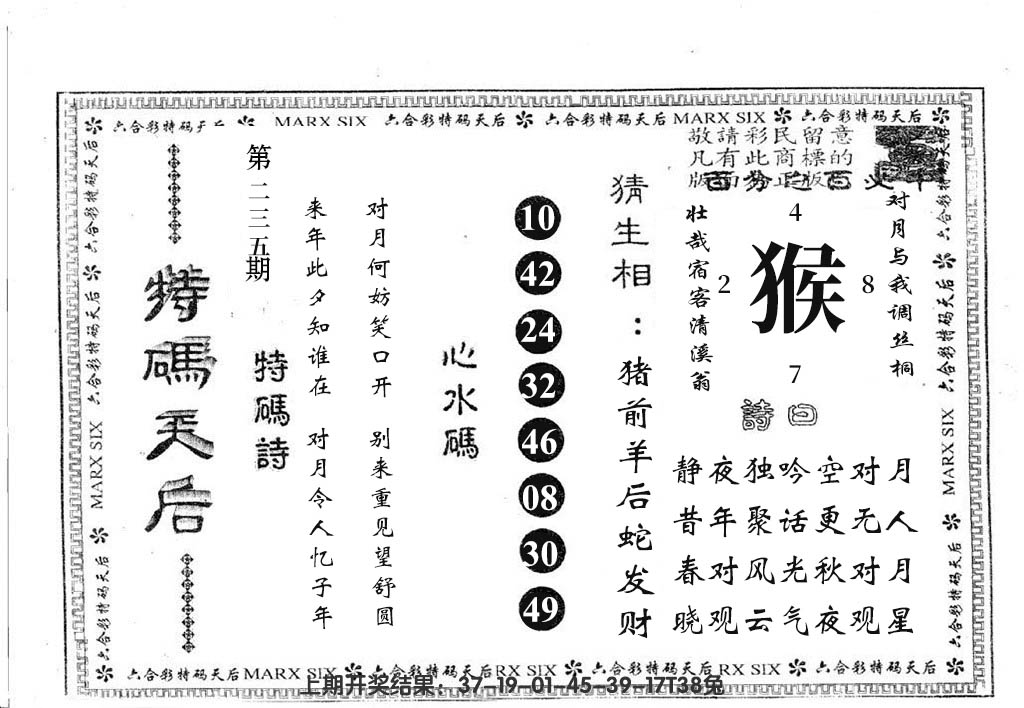 六合彩特码天后 MARX SIX 六合彩特码天后 六合彩特码天后 MARX SIX 六合彩特码天后
敬請彩民留意
凡有此商標的
版面均为正版
第二三五期
特碼天后
特碼詩
对月何妨笑口开 别来重见望舒圆
来年此夕知谁在 对月令人忆子年
心水碼
10
42
24
32
46
08
30
49
猜生相:猪前羊后蛇发财
对月与我调丝桐
壮哉宿客清溪翁
4
2 猴 8
7
詩曰
静夜独吟空对月
昔年聚话更无人
春对风光秋对月
晓观云气夜观星
六合彩特码天后 MARX SIX 六合彩特码天后
六合彩特码天后 MARX SIX 六合彩特码天后
六合彩特码天后 MARX SIX 六合彩特码天后 RX SIX 六合彩特码天后 RX SIX 六合彩特码天后
上期开奖结果：37-19-01-45-39-17T38兔